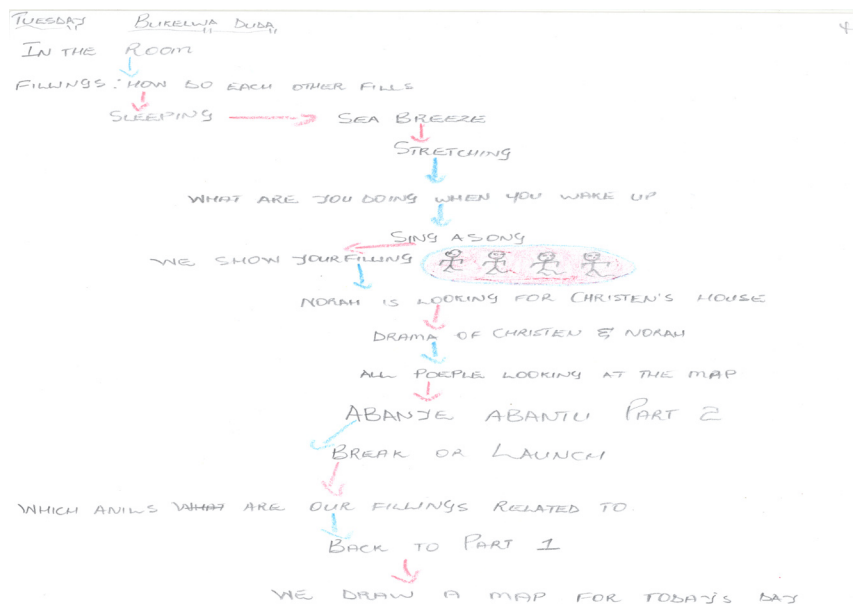 TUESDAY BUKELWA DUDA 4
IN THE ROOM
FILLINGS: HOW DO EACH OTHER FILLS
SLEEPING SEA BREEZE
STRETCHING
WHAT ARE YOU DOING WHEN YOU WAKE UP
SING A SONG
WE SHOW YOUR FILLING
NORAH IS LOOKING FOR CHRISTEN'S HOUSE
DRAMA OF CHRISTEN & NORAH
ALL POEPLE LOOKING AT THE MAP
ABANYE ABANTU PART 2
BREAK OR LAUNCH
WHICH ANILS WHAT ARE OUR FILLINGS RELATED TO.
BACK TO PART 1
WE DRAW A MAP FOR TODAY'S DAY